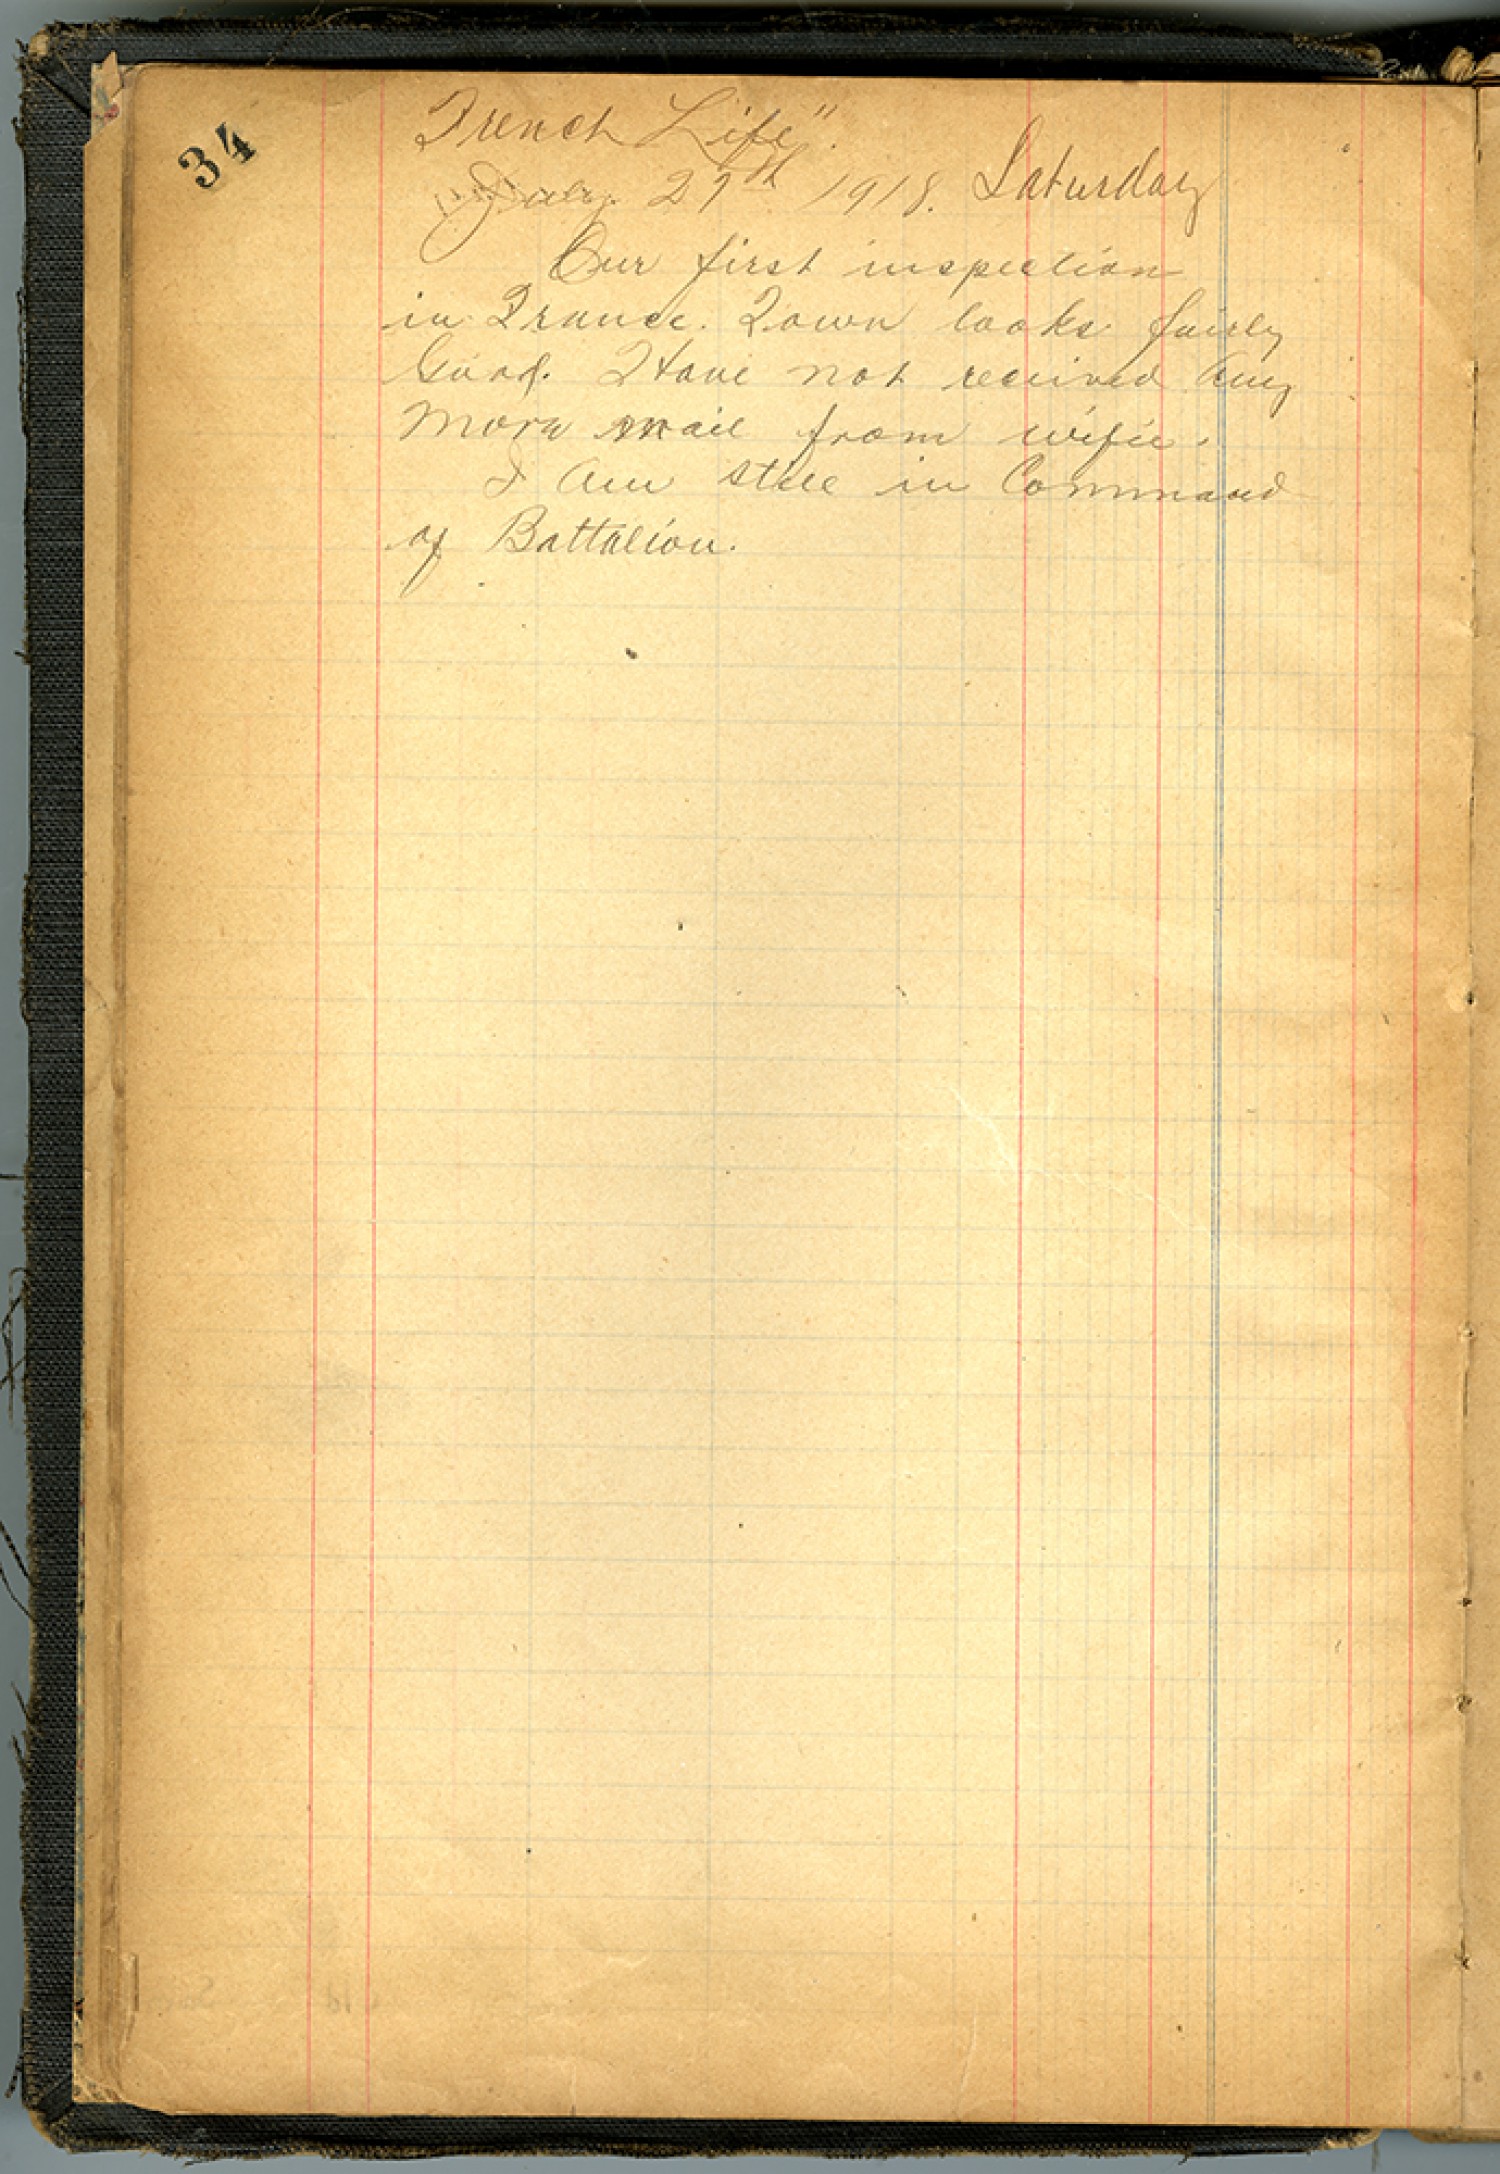 34
French Life".
July. 27th 1918. Saturday
Our first inspection
in France. Town looks fairly
Good. Have not received Any
More mail from wifie.
I Am still in Command
of Battalion.